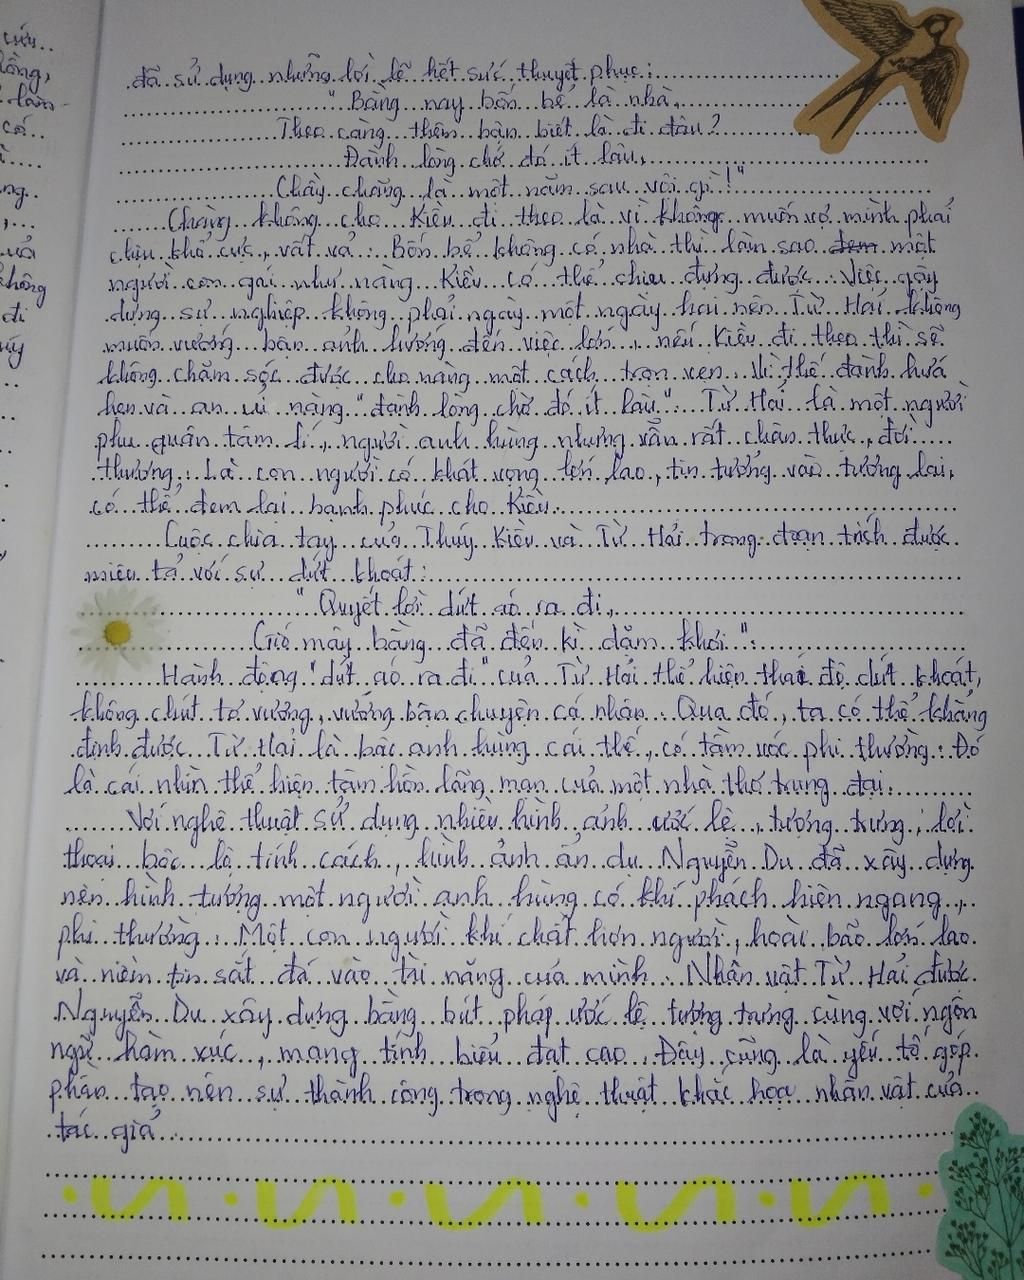 cứu
đã sử dụng những lời lẽ hết sức thuyết phục:
" Bằng nay bốn bể là nhà,
Theo càng thêm bận biết là đi đâu?
Đành lòng chờ đó ít lâu,
Chầy chăng là một năm sau vội gì!"
Chàng không cho Kiều đi theo là vì không muốn vợ mình phải
chịu khổ cực, vất vả. Bốn bể không có nhà thì làm sao đem một
người con gái như nàng Kiều có thể chịu đựng được. Việc gây
dựng sự nghiệp không phải ngày một ngày hai nên Từ Hải không
muốn vướng bận ảnh hưởng đến việc lớn, nếu Kiều đi theo thì sẽ
không chăm sóc được cho nàng một cách trọn vẹn. Vì thế đành hứa
hẹn và an ủi nàng "đành lòng chờ đó ít lâu". Từ Hải là một người
phu quân tâm lí, người anh hùng nhưng vẫn rất chân thực, đời
thường. Là con người có khát vọng lớn lao, tin tưởng vào tương lai,
có thể đem lại hạnh phúc cho Kiều.
Cuộc chia tay của Thúy Kiều và Từ Hải trong đoạn trích được
miêu tả với sự dứt khoát:
" Quyết lời dứt áo ra đi,
Gió mây bằng đã đến kì dặm khơi".
Hành động "dứt áo ra đi" của Từ Hải thể hiện thái độ dứt khoát,
không chút tơ vương, vướng bận chuyện cá nhân. Qua đó, ta có thể khẳng
định được Từ Hải là bậc anh hùng cái thế, có tầm vóc phi thường. Đó
là cái nhìn thể hiện tâm hồn lãng mạn của một nhà thơ trung đại.
Với nghệ thuật sử dụng nhiều hình ảnh ước lệ, tượng trưng, lời
thoại bộc lộ tính cách, hình ảnh ẩn dụ Nguyễn Du đã xây dựng
nên hình tượng một người anh hùng có khí phách hiên ngang,
phi thường. Một con người khí chất hơn người, hoài bão lớn lao
và niềm tin sắt đá vào tài năng của mình. Nhân vật Từ Hải được
Nguyễn Du xây dựng bằng bút pháp ước lệ tượng trưng cùng với ngôn
ngữ hàm xúc, mang tính biểu đạt cao. Đây cũng là yếu tố góp
phần tạo nên sự thành công trong nghệ thuật khắc họa nhân vật của
tác giả